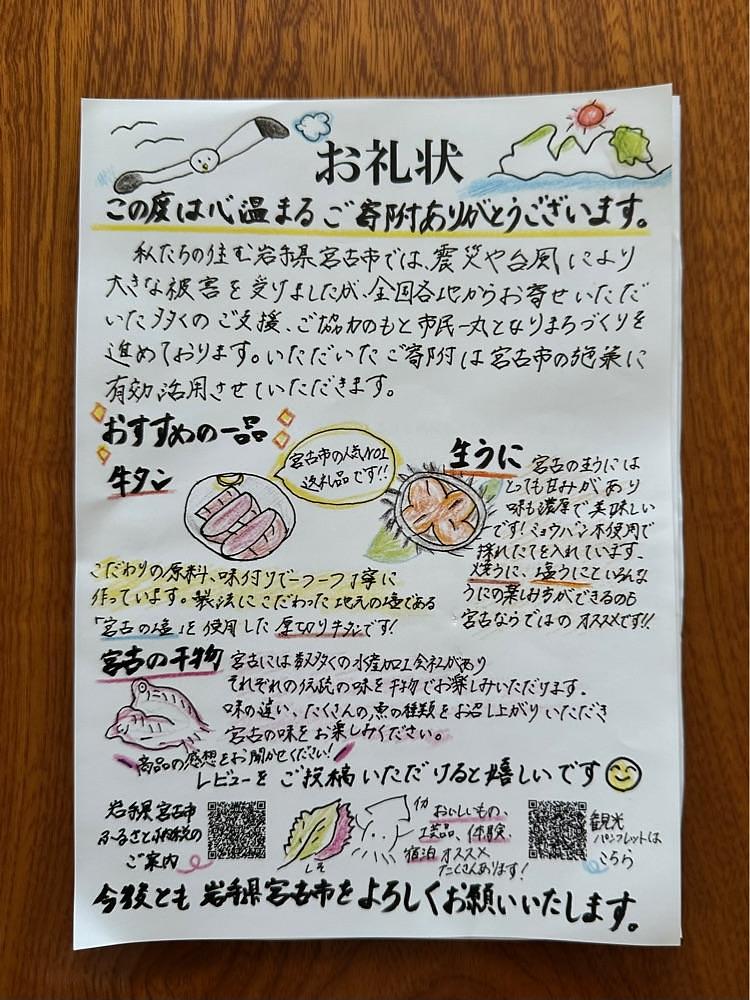 お礼状
この度は心温まるご寄附ありがとうございます。
私たちの住む岩手県宮古市では、震災や台風により
大きな被害を受けましたが、全国各地からお寄せいただ
いた多くのご支援、ご協力のもと市民一丸となりまちづくりを
進めております。いただいたご寄附は宮古市の施策に
有効活用させていただきます。
おすすめの一品
牛タン
宮古市の人気NO1
返礼品です!!
こだわりの原料、味付けで一つ一つ丁寧に
作っています。製法にこだわった地元の塩である
「宮古の塩」を使用した厚切り牛タンです!
生うに
宮古の生うには
とっても甘みがあり
味も濃厚で美味しい
です!ミョウバン不使用で
採れたてを入れています。
焼うに、塩うにといろんな
うにの楽しみ方ができるのも
宮古ならではのオススメです!!
宮古の干物
宮古には数多くの水産加工会社があり
それぞれの伝統の味を干物でお楽しみいただけます。
味の違い、たくさんの魚の種類をお召し上がりいただき
宮古の味をお楽しみください。
商品の感想をお聞かせください!
レビューをご投稿いただけると嬉しいです
岩手県宮古市
ふるさと納税の
ご案内
しそ
イカ
おいしいもの、
工芸品、体験、
宿泊オススメ
たくさんあります!
観光
パンフレットは
こちら
今後とも岩手県宮古市をよろしくお願いいたします。